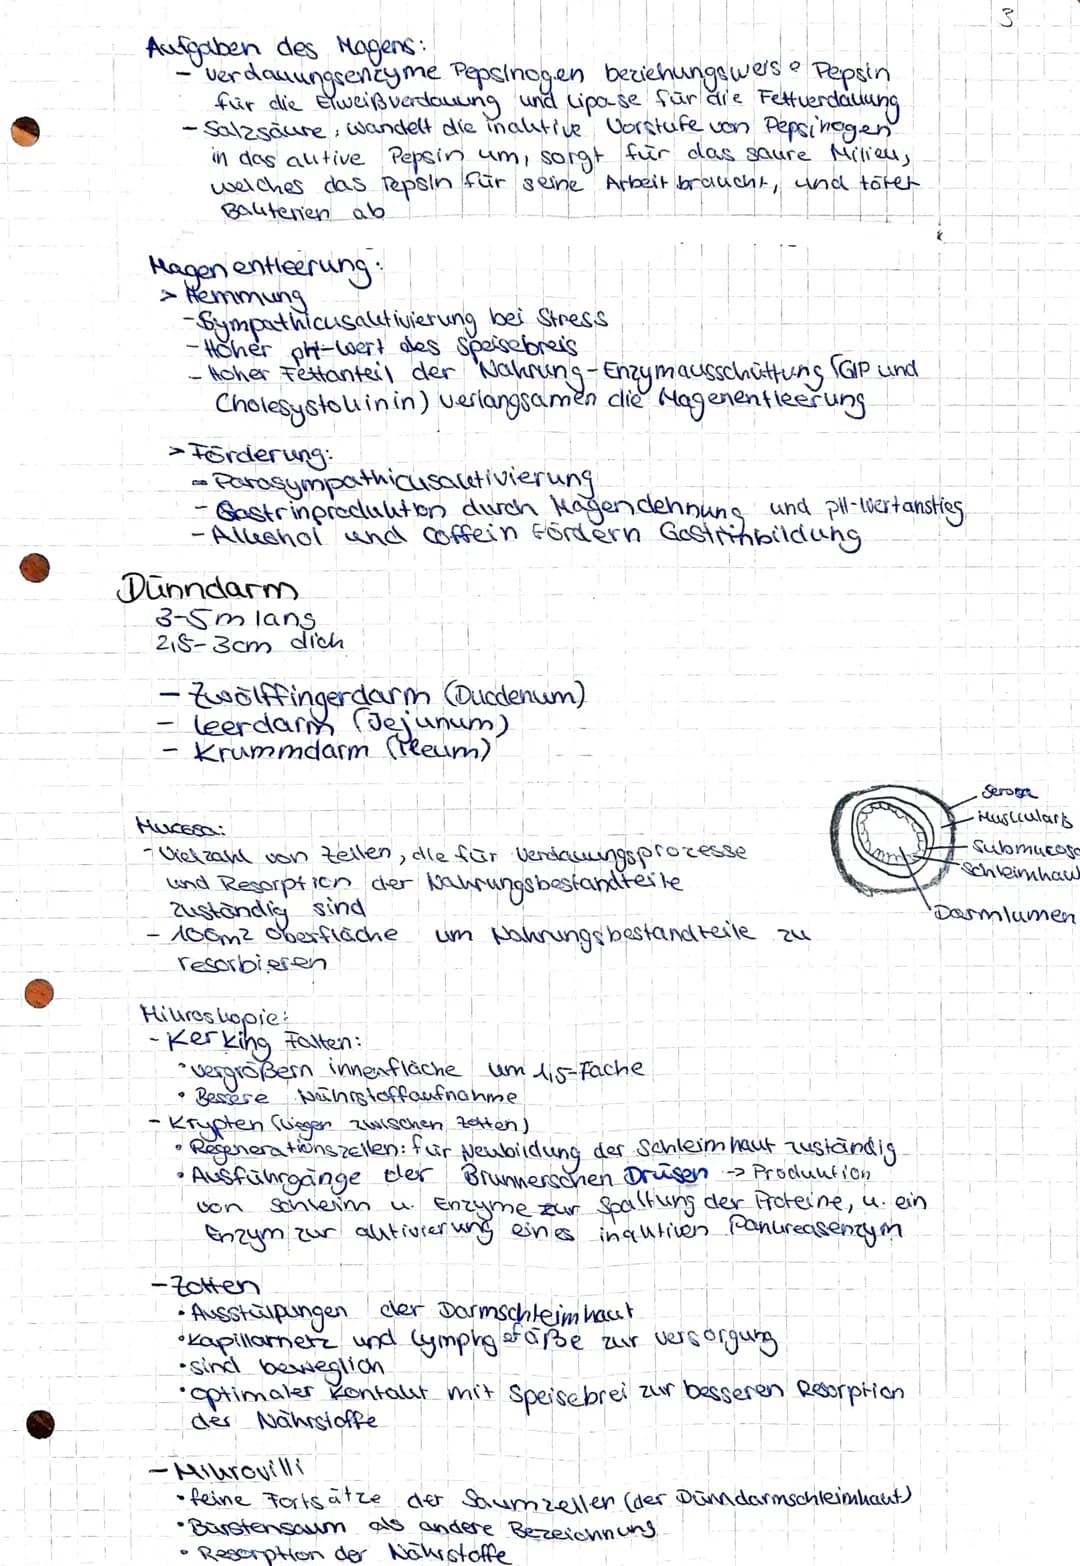 3
Aufgaben des Magens:
- Verdauungsenzyme Pepsinogen beziehungsweise Pepsin
für die Eiweißverdauung und Lipase für die Fettverdauung
- Salzsäure, wandelt die inaktive Vorstufe von Pepsinogen
in das aktive Pepsin um, sorgt für das saure Milieu,
welches das Pepsin für seine Arbeit braucht, und tötet
Bakterien ab
Magenentleerung:
> Hemmung
- Sympathicusaktivierung bei Stress
- Hoher pH-Wert des Speisebreis
- hoher Fettanteil der Nahrung - Enzymausschüttung (GIP und
Cholesystokinin) verlangsamen die Magenentleerung
> Förderung:
- Parasympathicusactivierung
- Gastrinproduktion durch Magendehnung und pH-Wertanstieg
- Alkohol und Coffein fördern Gastrinbildung
Dünndarm
3-5m lang
2,5-3cm dick
- Zwölffingerdarm (Duodenum)
- Leerdarm (Jejunum)
- Krummdarm (Ileum)
Serosa
Muscularis
Submucosa
Schleimhaut
Darmlumen
Mucosa:
- Vielzahl von Zellen, die für Verdauungsprozesse
und Resorption der Nahrungsbestandteile
zuständig sind
- 100m2 Oberfläche um Nahrungsbestandteile zu
resorbieren
Mikroskopie:
- Kerking Falten:
• vergrößern innenfläche um 1,5-Fache
• Bessere Nährstoffaufnahme
- Krypten (liegen zwischen Zotten)
• Regenerationszellen: für Neubildung der Schleimhaut zuständig
• Ausführgänge der Brunnerschen Drüsen -> Produktion
von Schleim u. Enzyme zur Spaltung der Proteine, u. ein
Enzym zur aktivierung eines inaktiven Pankreasenzym
- Zotten
• Ausstülpungen der Darmschleimhaut
• Kapillarnetz und Lymphgefäße zur versorgung
• sind beweglich
• optimaler Kontakt mit Speisebrei zur besseren Resorption
der Nährstoffe
- Mikrovilli
• feine Fortsätze der Saumzellen (der Dünndarmschleimhaut)
• Bürstensaum als andere Bezeichnung
• Resorption der Nährstoffe